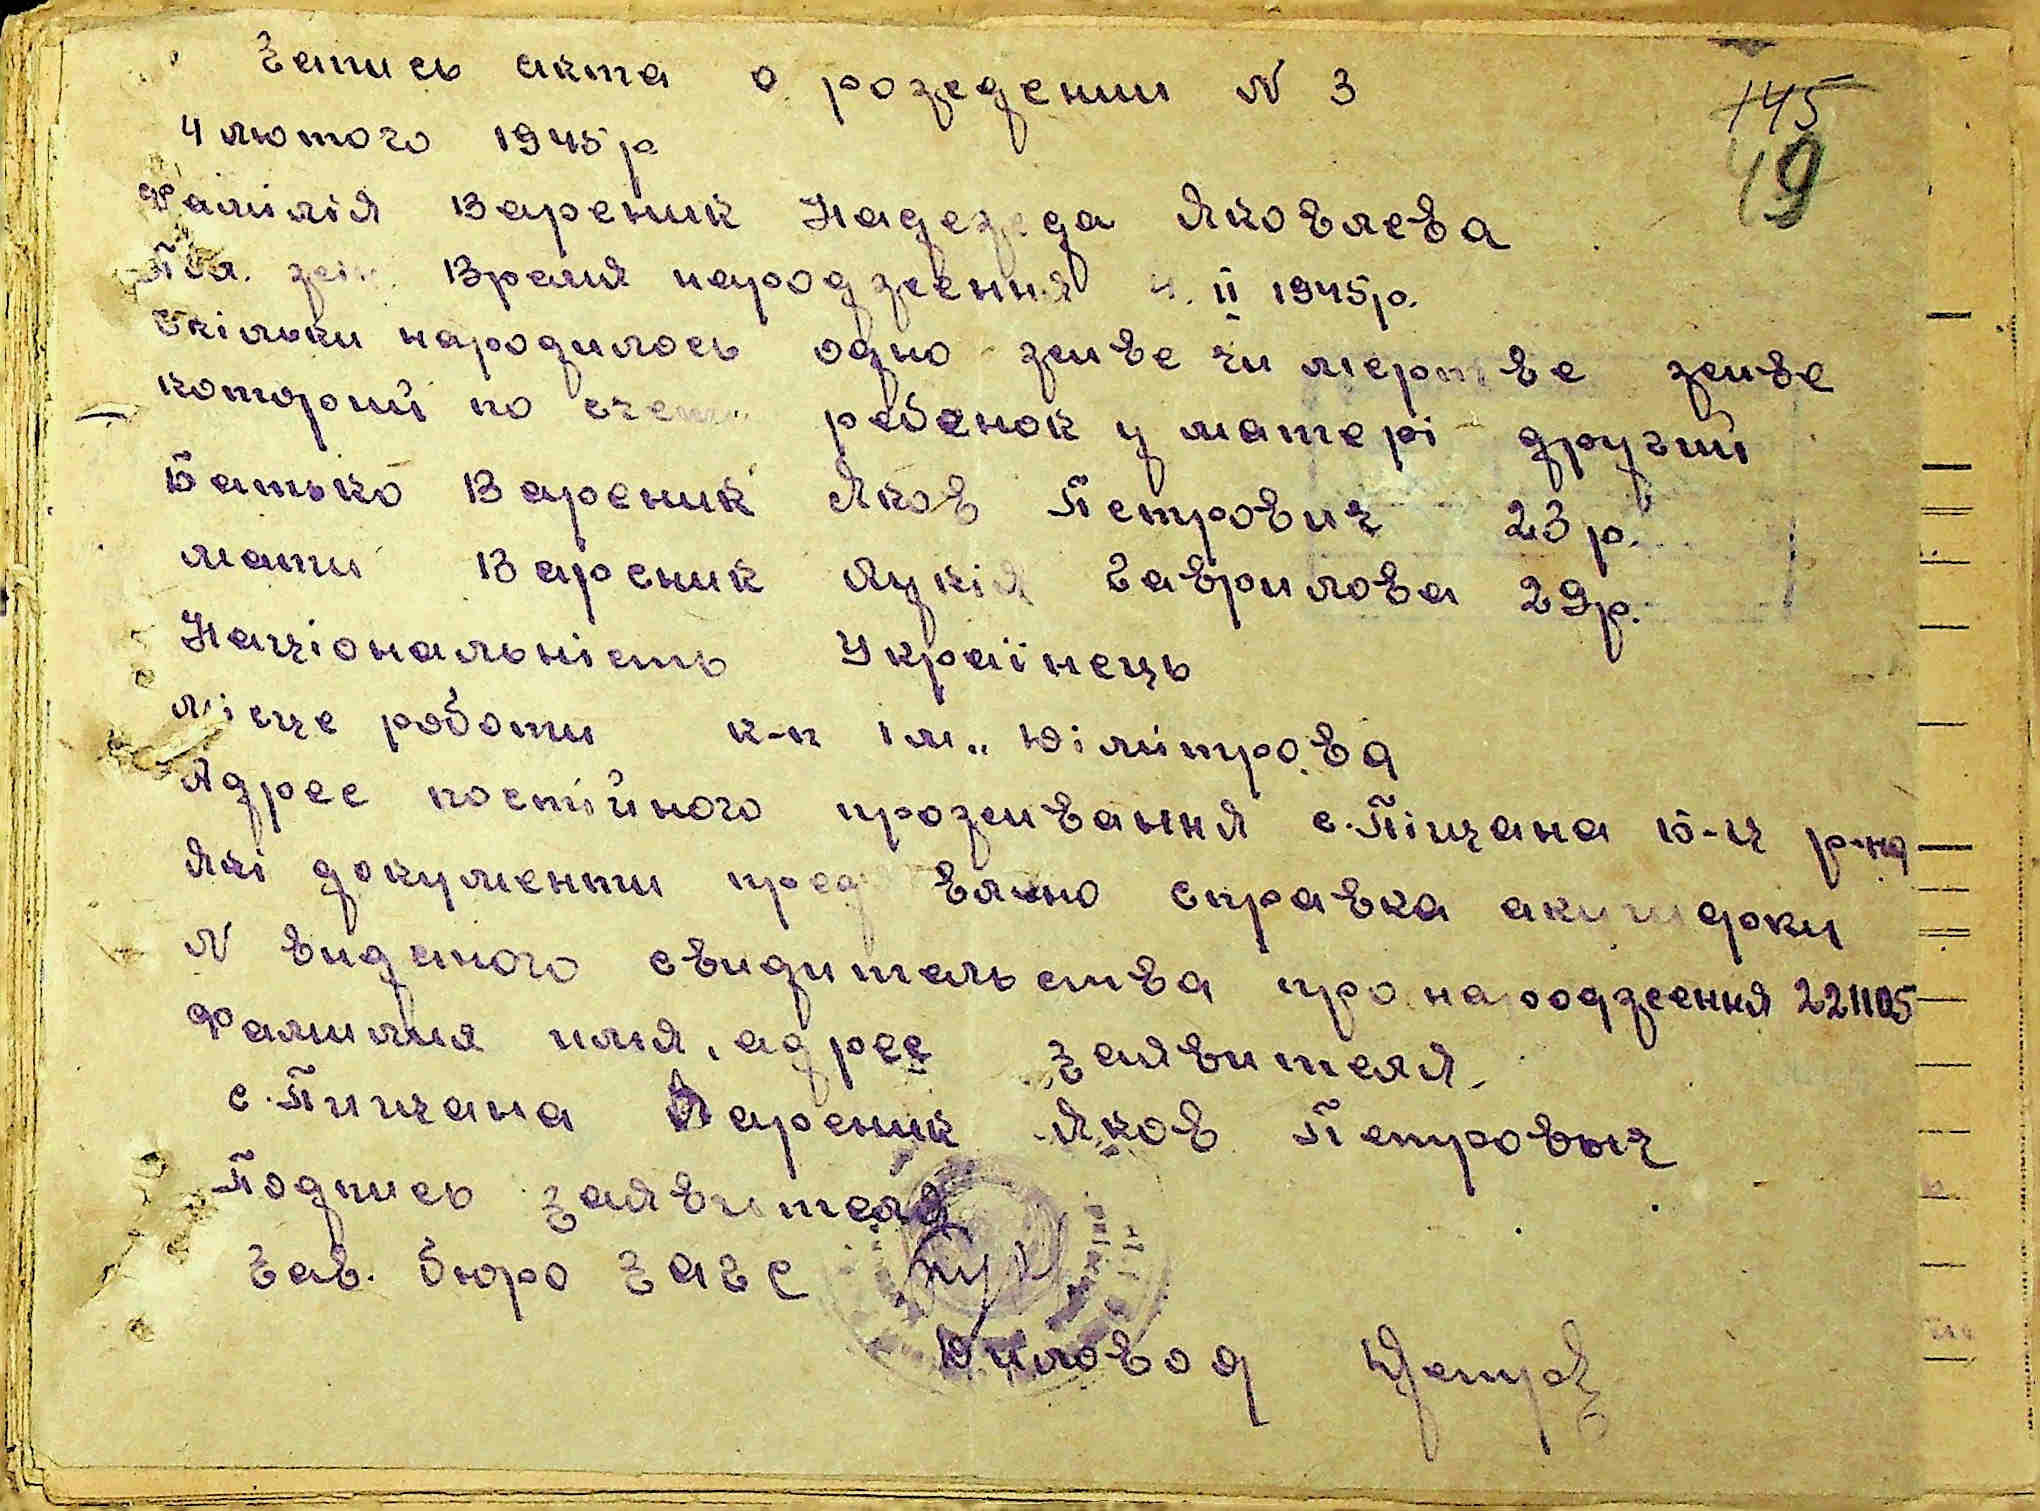 Запись акта о рождении N 3
145
49
4 лютого 1945 р
Фамілія Вареник Надежда Яковлева
Пол. жін. Время народження 4. II 1945 р.
Скільки народилось одно живе чи мертве живе
которий по счету ребенок у матері другий
Батько Вареник Яков Петрович 23 р.
мати Вареник Лукія Гаврилова 29 р.
Національність Українець
Місце роботи к-п ім.. Дімітрова
Адрес постійного проживання с. Піщана Б-Ц р-на
Які документи предявлено справка акушерки
N виданого свидительства про народження 221105
Фамилия имя, адрес заявителя.
с. Пищана Вареник Яков Петровыч
Подпись заявителя
Зав. бюро Загс
Діловод